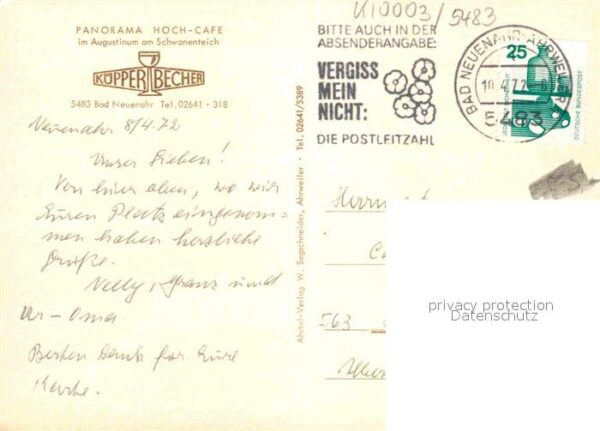 K10003/5483
PANORAMA HOCH-CAFE
im Augustinum am Schwanenteich
KÜPPER BECHER
5483 Bad Neuenahr Tel. 02641 - 318
BITTE AUCH IN DER
ABSENDERANGABE:
VERGISS
MEIN
NICHT:
DIE POSTLEITZAHL
BAD NEUENAHR-AHRWEILER
10.4.72
5483
25
JEDERZEIT SICHERHEIT
DEUTSCHE BUNDESPOST
Neuenahr 8/4.72
Unser Lieben!
Von hier oben, wo wir
Euren Platz eingenom=
men haben herzliche
Grüße.
Nelly, Franz und
Ur-Oma.
Besten Dank für Eure
Karte.
Ahrtal-Verlag W. Segschneider, Ahrweiler - Tel. 02641/5389
563
privacy protection
Datenschutz